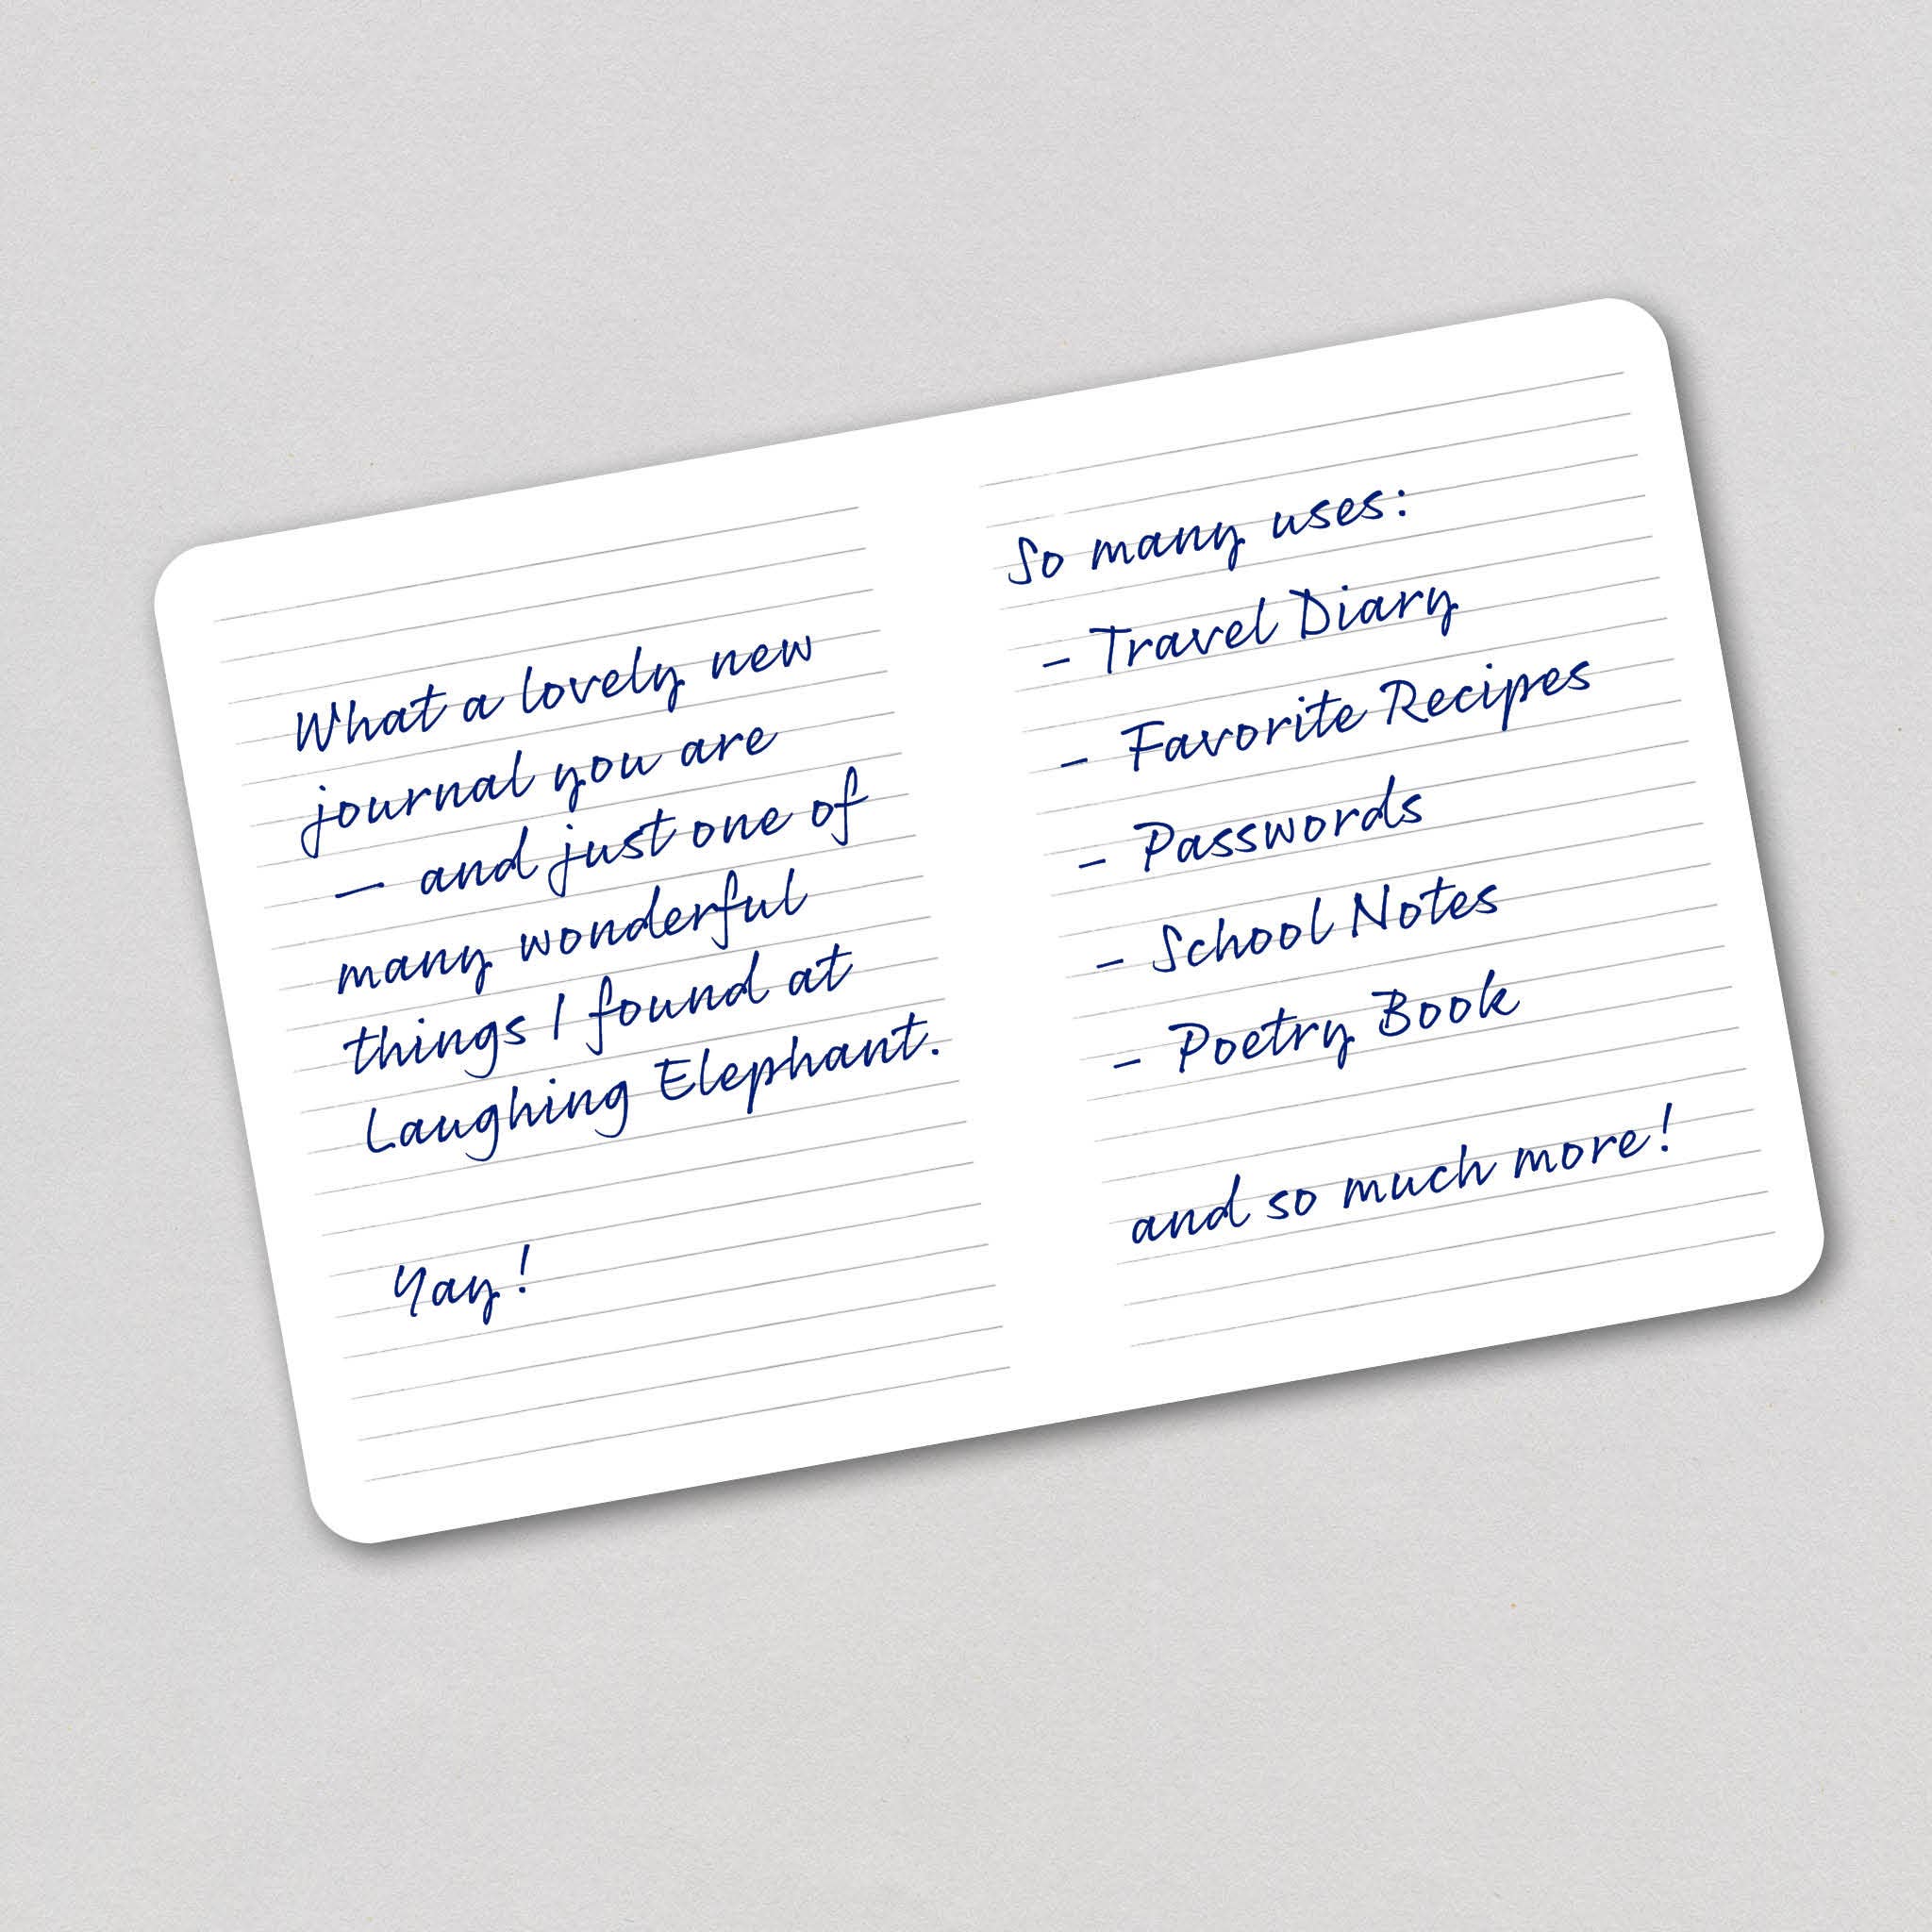 What a lovely new
journal you are
— and just one of
many wonderful
things I found at
Laughing Elephant.
Yay!
So many uses:
- Travel Diary
- Favorite Recipes
- Passwords
- School Notes
- Poetry Book
and so much more!